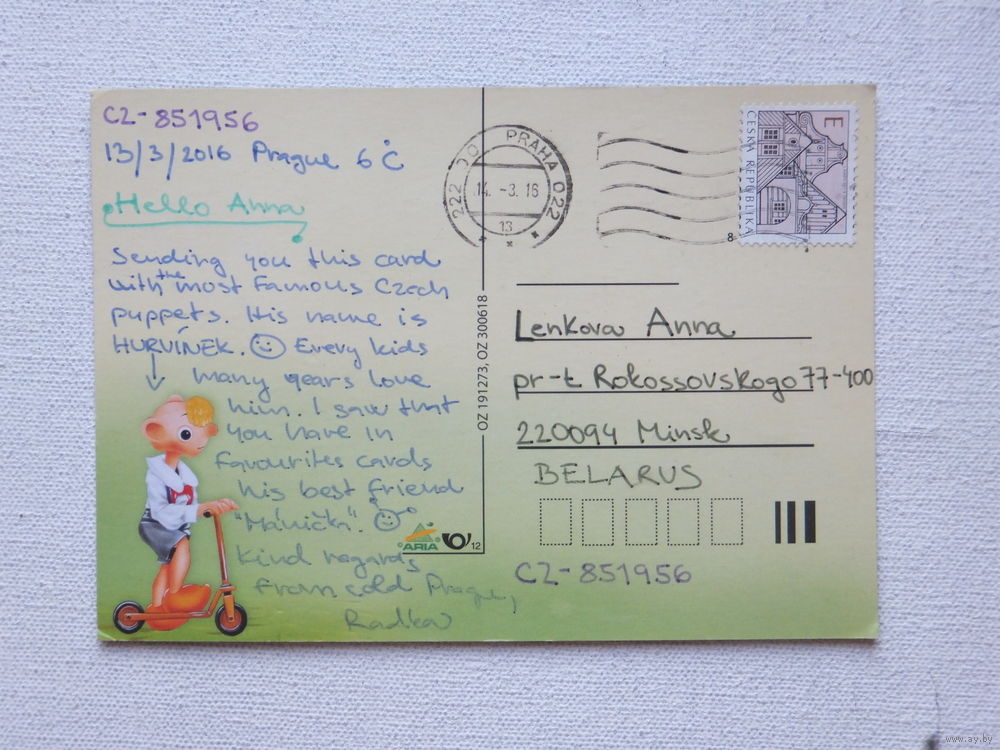 CZ-851956
13/3/2016 Prague 6°C
Hello Anna
Sending you this card
with the most Famous Czech
puppets. His name is
HURVÍNEK. Every kids
many years love
him. I saw that
you have in
favourites cards
his best friend
"Mánička".
Kind regards
From cold Prague,
Radka
OZ 191273, OZ 300618
ARIA
12
PRAHA 022
222 00
14. -3. 16
13
8
E
ČESKÁ REPUBLIKA
Lenkova Anna
pr-t Rokossovskogo 77-400
220094 Minsk
BELARUS
CZ-851956
www.ay.by